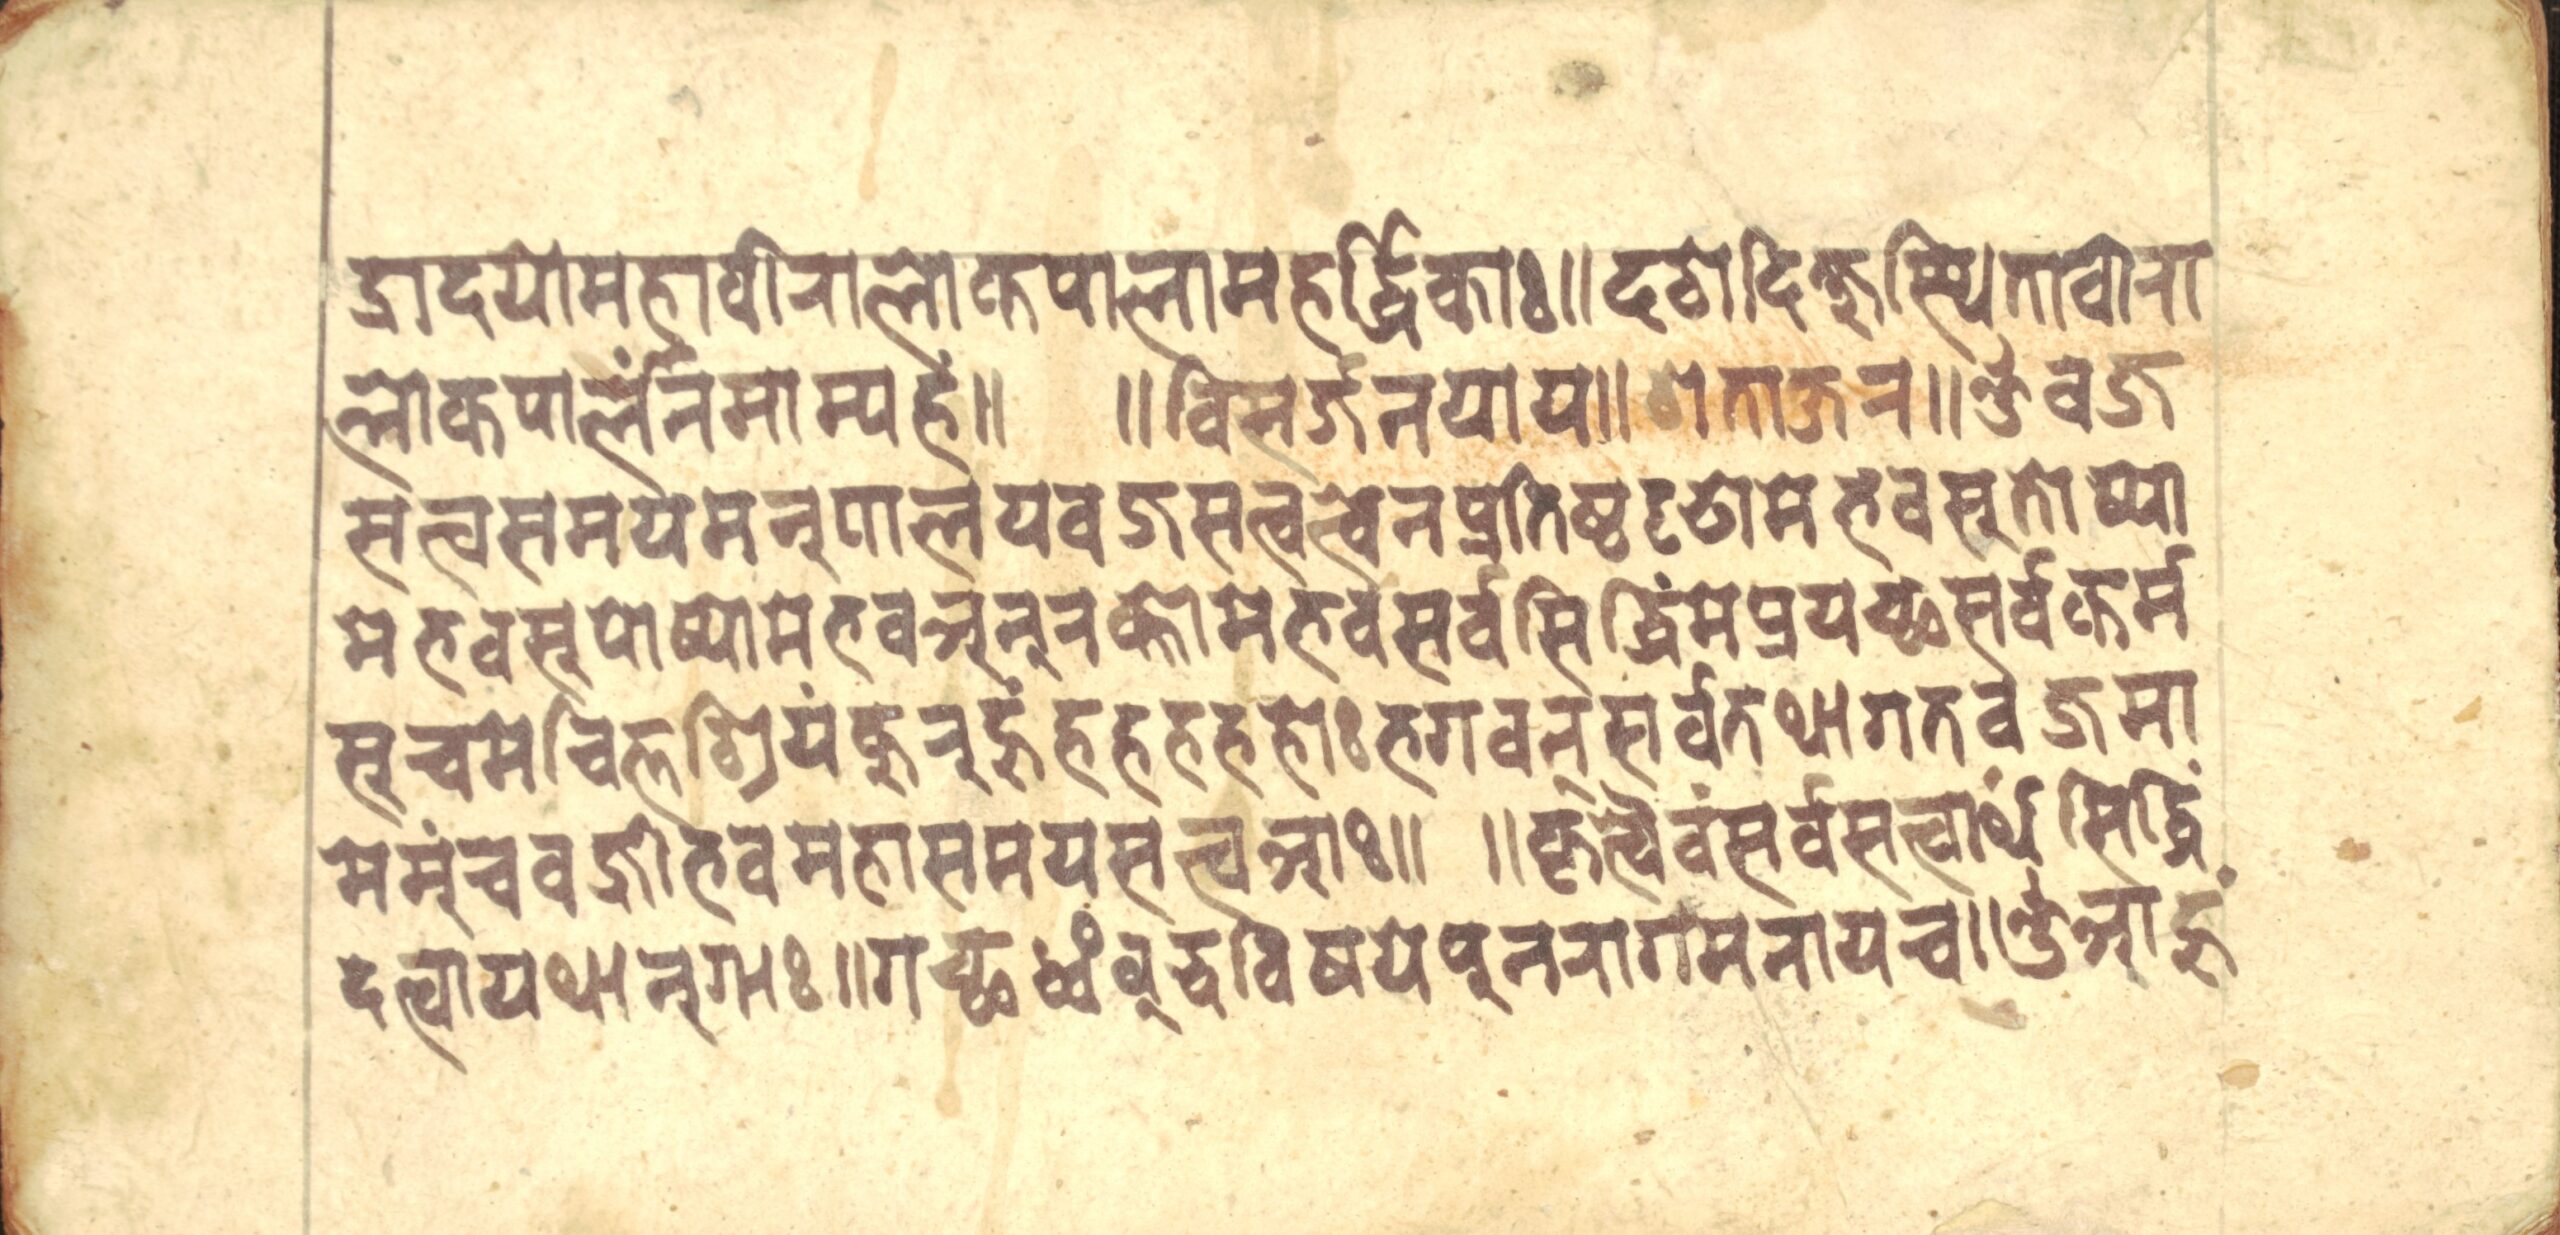 द्रादयोमहावीरालोकपालामहर्द्धिकाः॥दशोदिक्षुस्थितावीरा
लोकपालंनमाम्यहं॥ ॥विसर्जनयाय॥ ॥ॐवज्र
सत्वसमयमनुपालयवज्रसत्वत्वेनप्रतिष्ठदृढोमेभवसुतोष्यो
मेभवसुपोष्योमेभवअनुरक्तोमेभवसर्वसिद्धिंमेप्रयच्छसर्वकर्म
सुचमेचित्तश्रियंकुरुहूंहहहहहोःभगवन्सर्वतथागतवज्रमा
मेमुंचवज्रीभवमहासमयसत्वआः॥ ॥कृत्वैवंसर्वसत्वार्थंसिद्धिं
दत्वायथानुगाः॥गच्छध्वंबुद्धविषयेपुनरागमनायच॥ॐआहूं